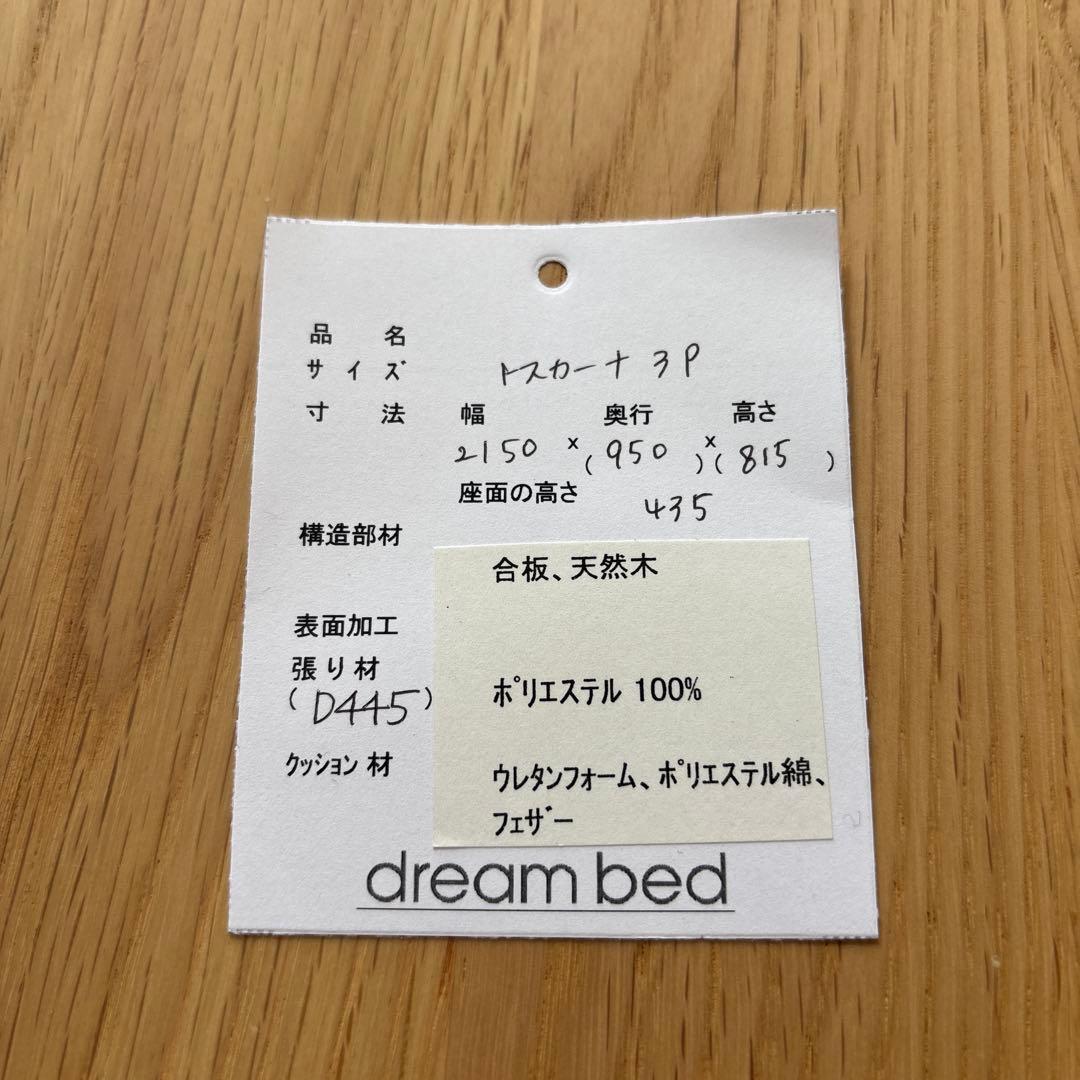 品名
サイズ トスカーナ 3P
寸法 幅 奥行 高さ
2150 x (950) x (815)
座面の高さ 435
構造部材 合板、天然木
表面加工
張り材 ポリエステル 100%
(D445)
クッション材 ウレタンフォーム、ポリエステル綿、
フェザー
dream bed